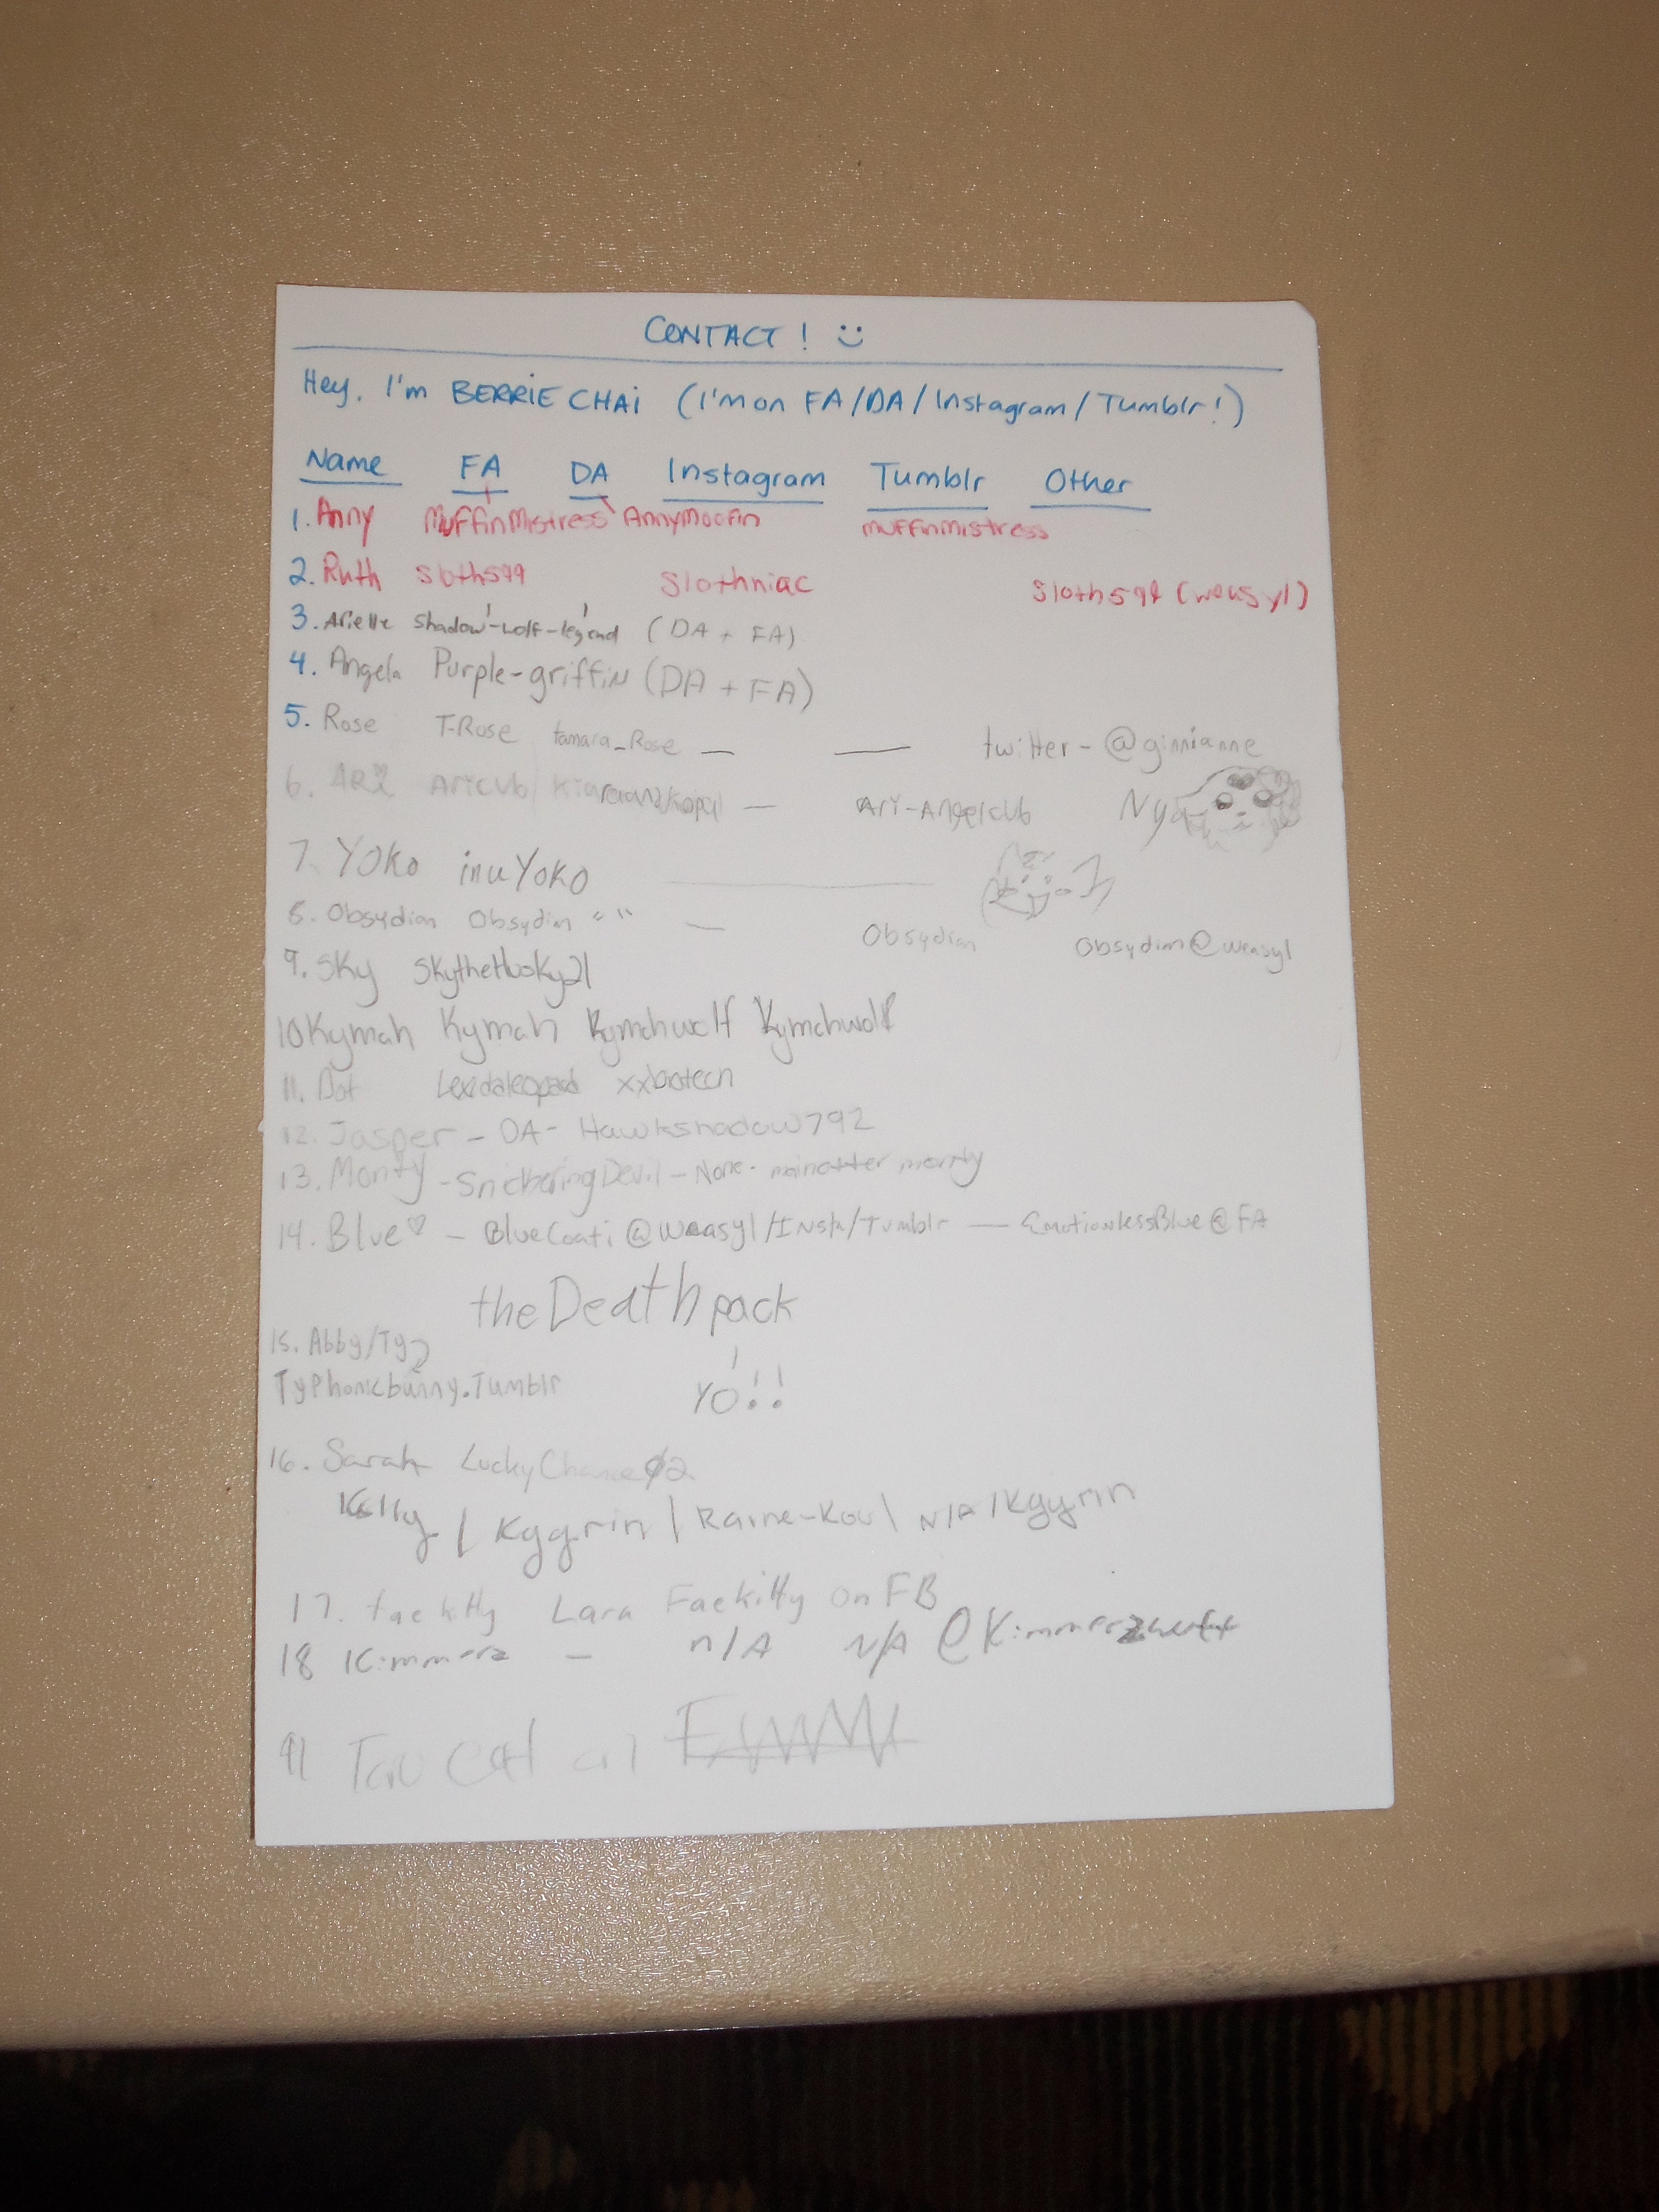 CONTACT! :)
Hey, I'm BERRIE CHAi (I'm on FA/DA/Instagram/Tumblr!)
Name FA DA Instagram Tumblr Other
1. Anny MuffinMistress AnnyMoofin muffinmistress
2. Ruth Sloth599 Slothniac Sloth599 (weasyl)
3. Arielle Shadow-wolf-legend (DA + FA)
4. Angela Purple-griffin (DA + FA)
5. Rose T-Rose tamara_Rose — — twitter - @ginnianne
6. ARi Aricub — Ari-Angelcub Nya
7. Yoko inuYoko
8. Obsydian Obsydian " " — Obsydian Obsydian@weasyl
9. Sky SkytheHusky21
10 Kymah Kymah Kymahwolf Kymahwolf
11. Dot
12. Jasper - DA - Hawkshadow792
13. Monty - SnickeringDevil - None -
14. Blue♡ - BlueCoati @Weasyl/Insta/Tumblr — EmotionlessBlue@FA
theDeathpack
15. Abby/Ty
Typhonicbunny.Tumblr
YO!!
16. Sarah LuckyChance02
Kelly / Kyyrin | Raine-Kou \ N/A / Kyyrin
17. faekitty Lara Faekitty on FB
18 Kimmerz — n/A N/A